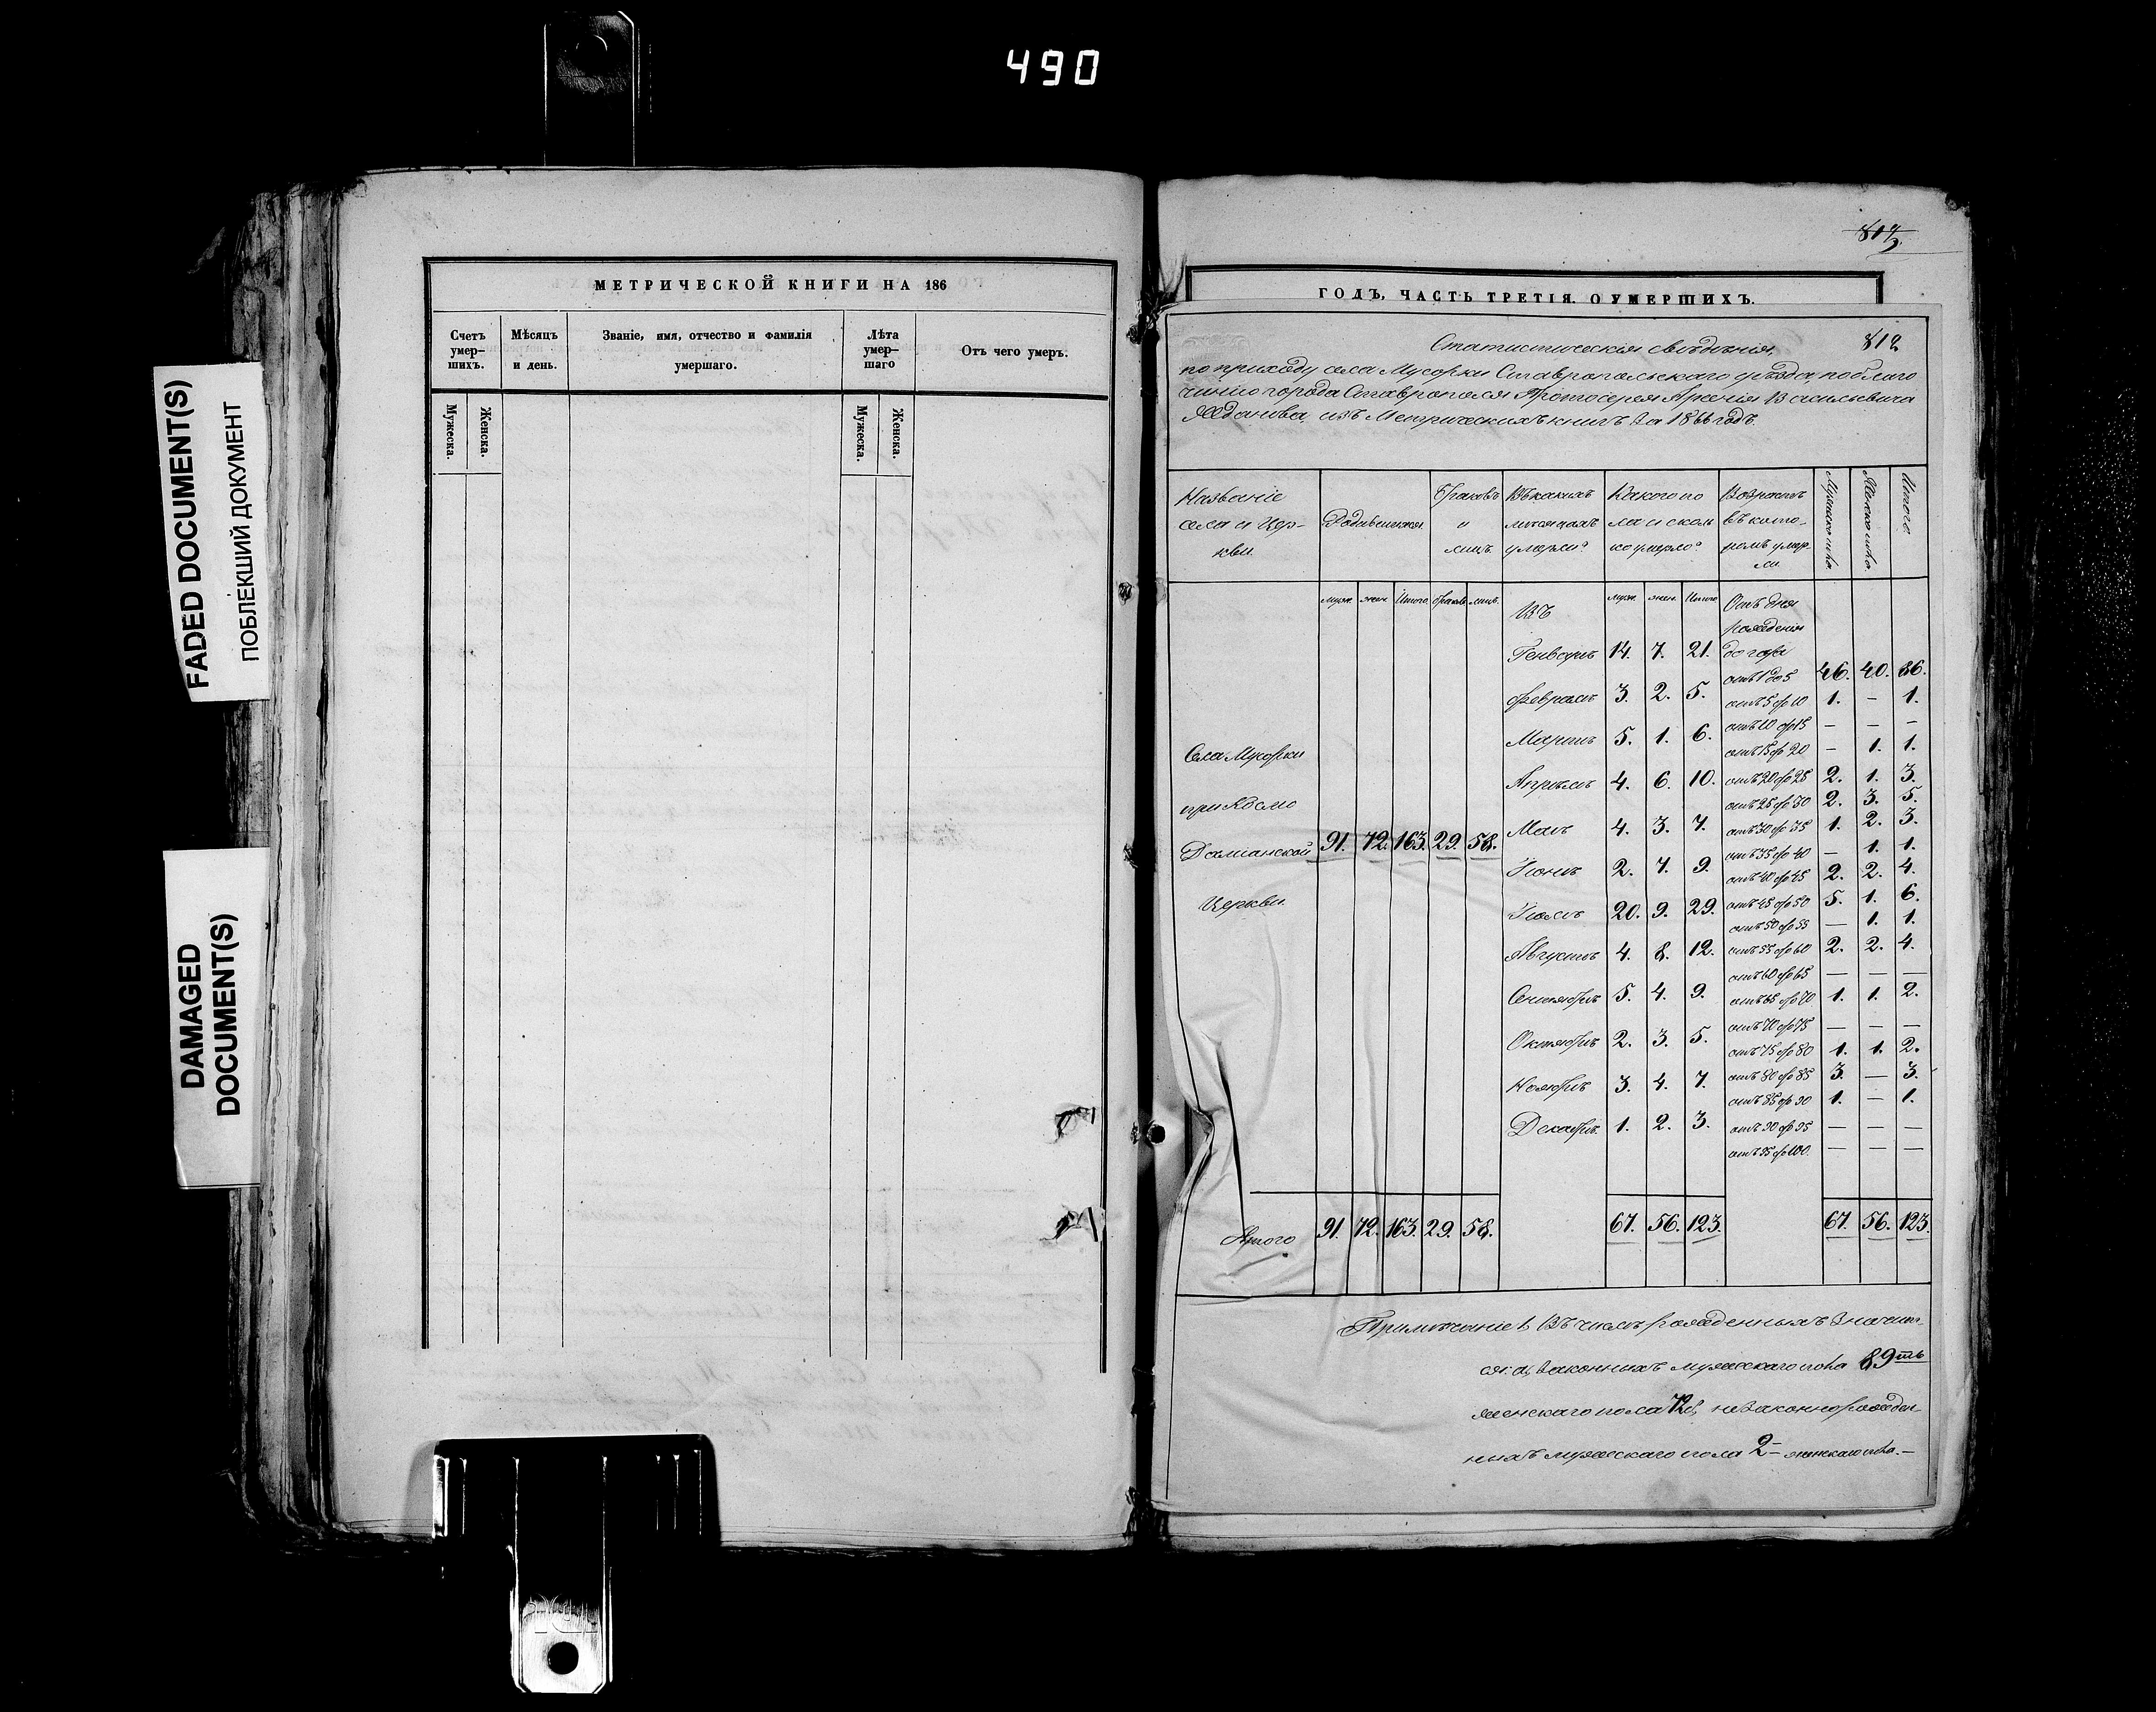 490
FADED DOCUMENT(S)
ПОБЛЕКШИЙ ДОКУМЕНТ
DAMAGED
DOCUMENT(S)
МЕТРИЧЕСКОЙ КНИГИ НА 186
Счетъ умер-шихъ.
Мужеска. Женска.
Мѣсяцъ и день.
Званіе, имя, отчество и фамилія умершаго.
Лѣта умер-шаго
Мужеска. Женска.
Отъ чего умеръ.
ГОДЪ, ЧАСТЬ ТРЕТІЯ. О УМЕРШИХЪ.
812
Статистическія свѣдѣнія,
по приходу села Мусорки Ставропольскаго уѣзда, по благо
чинію города Ставрополя Протоіерея Арсенія Васильевича
Жданова, изъ Метрическихъ книгъ за 1866 годъ.
Названіе села и Цер-кви.
Родившихся
Браковъ и лицъ.
Въ какихъ мѣсяцахъ умерли?
Какого по ла и сколь ко умерло?
Возрастъ въ кото-ромъ умер-ли.
Мужеско пола.
Женско пола.
Итого.
муж. жен. Итого браковъ лицъ.
Въ
муж. жен. Итого
Отъ дня рожденія до года
Генварѣ 14. 7. 21.
отъ 1 до 5 46. 40. 86.
Февралѣ 3. 2. 5.
отъ 5 до 10 1. — 1.
отъ 10 до 15 — — —
Мартѣ 5. 1. 6.
отъ 15 до 20 — 1. 1.
Апрѣлѣ 4. 6. 10.
отъ 20 до 25 2. 1. 3.
отъ 25 до 30 2. 3. 5.
Маѣ 4. 3. 7.
отъ 30 до 35 1. 2. 3.
отъ 35 до 40 — 1. 1.
Села Мусорки
при Космо
Даміанской
Церкви.
91. 72. 163. 29. 58.
Іюнѣ 2. 7. 9.
отъ 40 до 45 2. 2. 4.
Іюлѣ 20. 9. 29.
отъ 45 до 50 5. 1. 6.
отъ 50 до 55 — 1. 1.
Августѣ 4. 8. 12.
отъ 55 до 60 2. 2. 4.
отъ 60 до 65 — — —
Сентябрѣ 5. 4. 9.
отъ 65 до 70 1. 1. 2.
отъ 70 до 75 — — —
Октябрѣ 2. 3. 5.
отъ 75 до 80 1. 1. 2.
Ноябрѣ 3. 4. 7.
отъ 80 до 85 3. — 3.
отъ 85 до 90 1. — 1.
Декабрѣ 1. 2. 3.
отъ 90 до 95 — — —
отъ 95 до 100. — — —
Итого 91. 72. 163. 29. 58. 67. 56. 123. 67. 56. 123.
Примѣчаніе 1, Въ числѣ рожденныхъ значит-
ся: а, законныхъ мужескаго пола 89ть
женскаго пола 72 б, незаконнорожден-
ныхъ мужескаго пола 2— женскаго пола. —